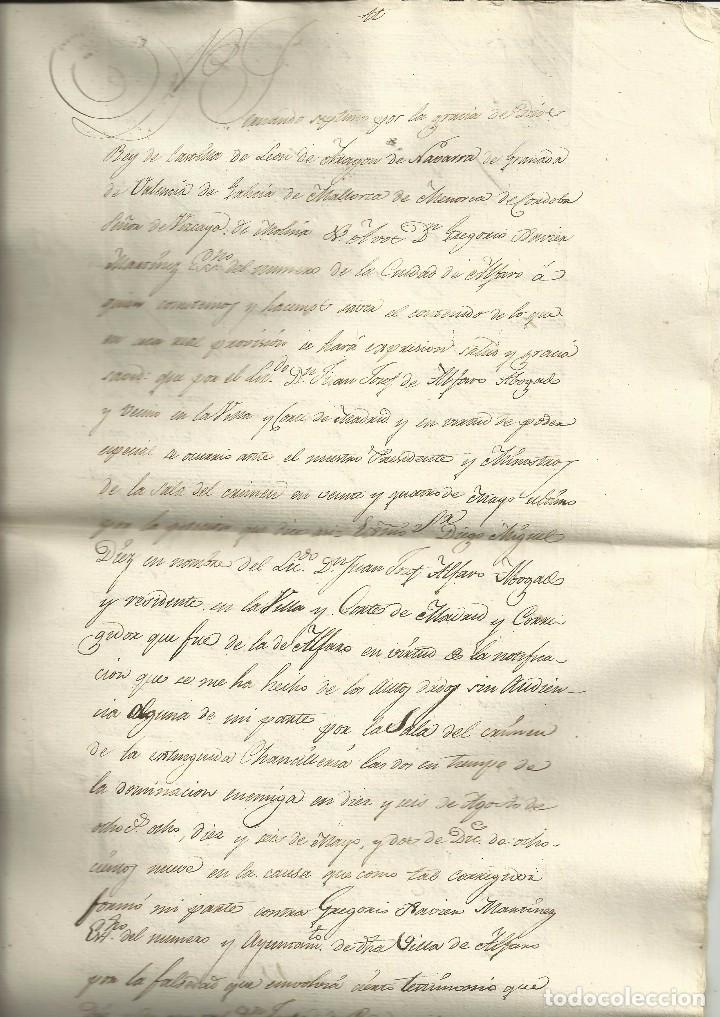 nando septimo por la gracia de Dios
Rey de Castilla de Leon de Aragon de Navarra de Granada
de Valencia de Galicia de Mallorca de Menorca de Cordoba
Señor de Vizcaya, de Molina &ª A vos Dn Gregorio Xavier
Martinez Esno del numero de la Ciudad de Alfaro á
quien cometemos y hacemos saver el contenido de lo que
en esta real provisión se hará expresion salud y gracia
saved: que por el Licdo Dn Juan Josef de Alfaro Abogado
y vecino en la Villa y Corte de Madrid y en virtud de poder
especial se ocurrio ante el nuestro Presidente y Ministros
de la sala del crimen en veinte y quatro de Mayo ultimo
por la que dice asi= Diego Miguel
Diez en nombre del Licdo Dn Juan Josef Alfaro Abogado
y residente en la Villa y Corte de Madrid y Corre
gidor que fue de la de Alfaro en virtud de la notifica-
cion que se me ha hecho de los autos dados sin Audien-
cia alguna de mi parte por la Sala del crimen
de la extinguida Chancilleria las dos en tiempo de
la dominacion enemiga en diez y seis de Agosto de
ocho ocho, diez y seis de Mayo, y dos de Dice de ocho-
cientos nueve en la causa que como tal corregidor
formó mi parte contra Gregorio Xavier Martinez
Esno del numero y Ayuntamto de dha Villa de Alfaro
por la falsedad que envolvia cierto testimonio que